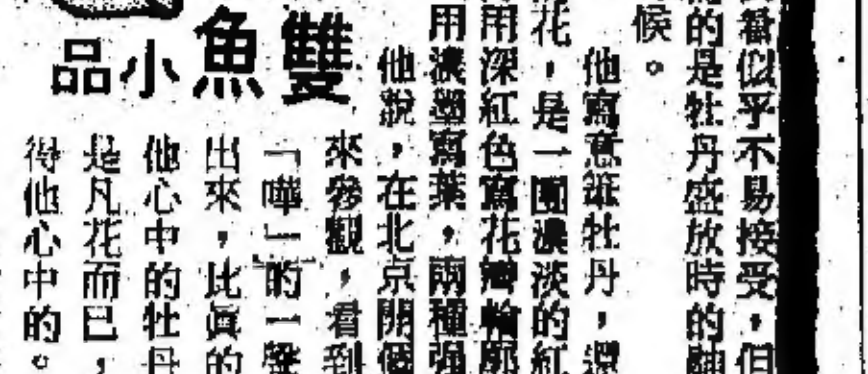 看似乎不易接受，但
的是牡丹盛放時的
候。
他寫意筆牡丹，還
花，是一團濃淡的紅
用深紅色寫花瓣輪廓
用濃墨寫葉，兩種强
他說，在北京開個
雙魚小品
來參觀，看到
「嘩」的一聲
出來，比眞的
他心中的牡丹
是凡花而已，
得他心中的。